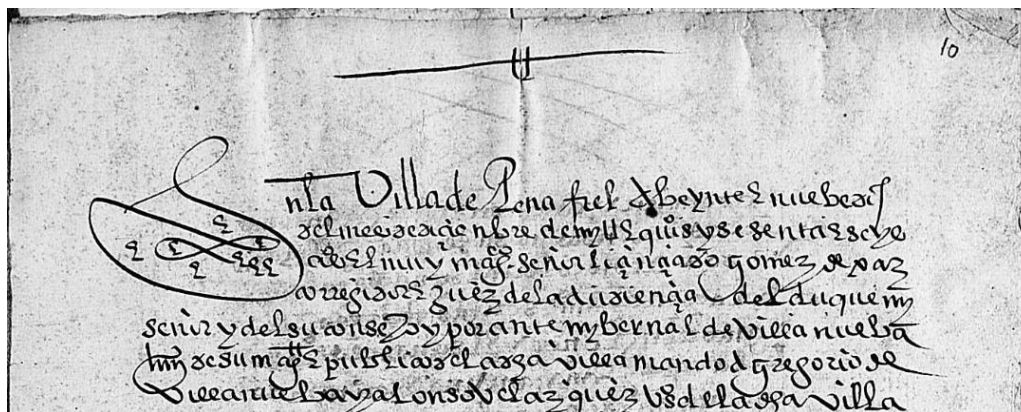 10
En la Villa de Peñafiel A beynte e nuebe dias
del mes de dezienbre de myll e quis y sesenta e seys
años El muy magco señor liçençiado gomez de paz
corregidor e juez de la audiençia del duque my
señor y del su consejo y por ante my bernal de villanueba
scrivano de su magt e publico de la dha villa mando a gregorio de
villanueba y a alonso velazquez vos de la dha villa